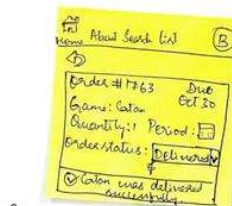 About Search List B
Home
Order #1763 Due
Game: Catan Oct 30
Quantity: 1 Period:
Order status: Delivered
Catan was delivered
successfully.